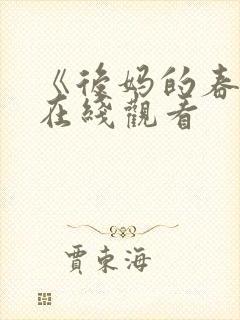 《後妈的春
在綫觀看
賈東海